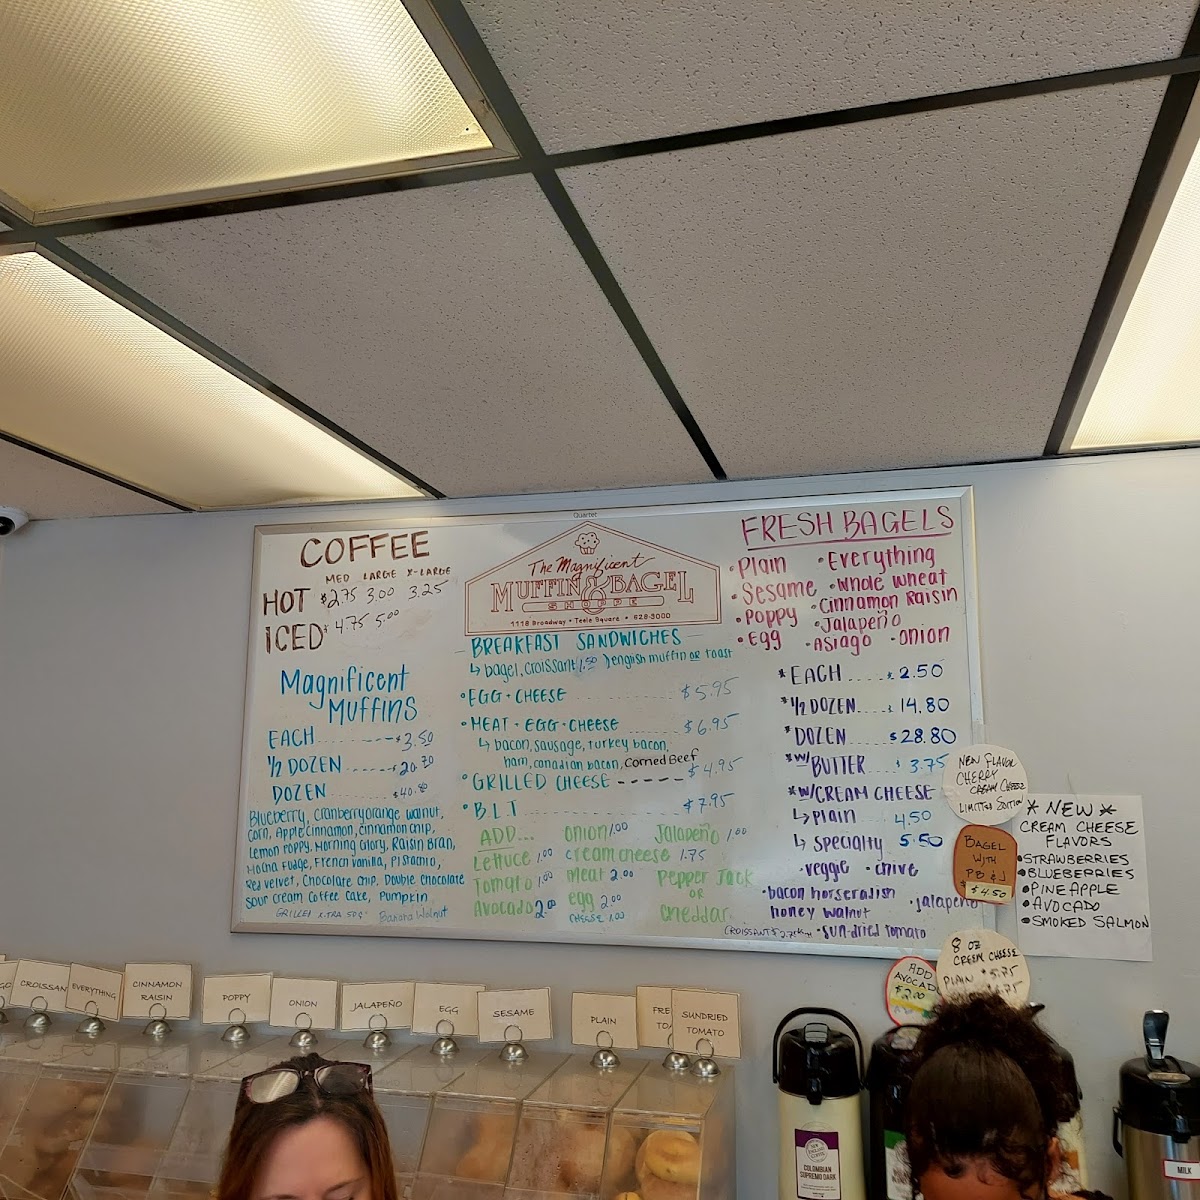 Quartet
COFFEE
MED LARGE X-LARGE
HOT $2.75 3.00 3.25
ICED $4.75 5.00
Magnificent
MUFFINS
EACH $3.50
1/2 DOZEN $20.70
DOZEN $40.80
Blueberry, cranberry orange walnut,
Corn, Apple cinnamon, cinnamon chip,
Lemon Poppy, Morning Glory, Raisin Bran,
Mocha Fudge, French Vanilla, Pistachio,
Red Velvet, Chocolate Chip, Double Chocolate
Sour Cream Coffee Cake, Pumpkin
GRILLED X-TRA 50¢ Banana Walnut
The Magnificent
MUFFIN & BAGEL
SHOPPE
1118 Broadway • Teele Square • 628-3000
BREAKFAST SANDWICHES
↳ bagel, croissant (1.50) english muffin or toast
• EGG + CHEESE $5.95
• MEAT + EGG + CHEESE $6.95
↳ bacon, sausage, turkey bacon,
ham, canadian bacon, Corned Beef
• GRILLED CHEESE $4.95
• B.L.T $7.95
ADD... Onion 1.00 Jalapeño 1.00
Lettuce 1.00 cream cheese 1.75
Tomato 1.00 Meat 2.00 Pepper Jack
or
Avocado 2.00 egg 2.00 cheddar
CHEESE 1.00
FRESH BAGELS
• Plain • Everything
• Sesame • Whole Wheat
• Poppy • Cinnamon Raisin
• Egg • Jalapeño
• Asiago • Onion
* EACH $2.50
* 1/2 DOZEN $14.80
* DOZEN $28.80
* W/ BUTTER $3.75
* W/ CREAM CHEESE
↳ Plain 4.50
↳ Specialty 5.50
• veggie • chive
• bacon horseradish • jalapeño
honey walnut
CROISSANT $2.75 • sun-dried tomato
NEW FLAVOR
CHERRY
CREAM CHEESE
LIMITED EDITION
BAGEL
WITH
PB & J
$4.50
* NEW *
CREAM CHEESE
FLAVORS
• STRAWBERRIES
• BLUEBERRIES
• PINEAPPLE
• AVOCADO
• SMOKED SALMON
8 OZ
CREAM CHEESE
PLAIN $5.75
ADD
AVOCADO
$2.00
CROISSAN
EVERYTHING
CINNAMON
RAISIN
POPPY
ONION
JALAPEÑO
EGG
SESAME
PLAIN
FRE
TO
SUNDRIED
TOMATO
COLOMBIAN
SUPREMO DARK
MILK